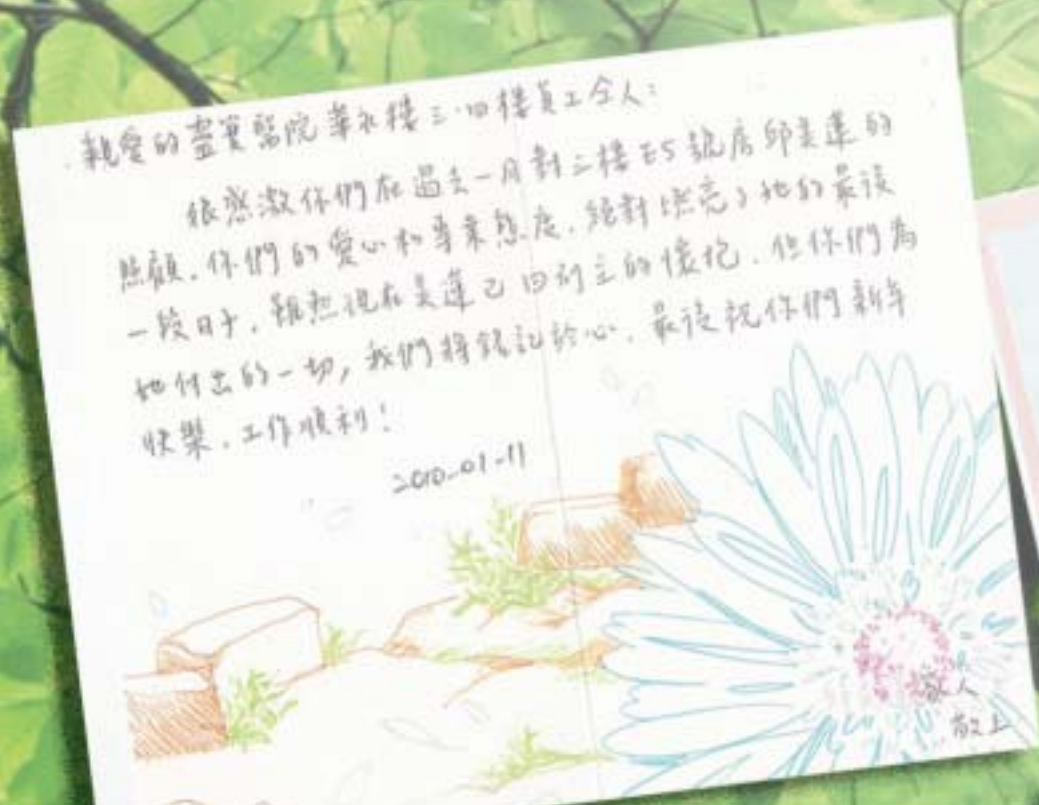 親愛的靈實醫院 華永樓三.四樓員工仝人：
很感激你們在過去一月對三樓E5號房邱美蓮的
照顧．你們的愛心和專業態度．絕對燃亮了她的最後
一段日子．雖然現在美蓮已回到主的懷抱．但你們為
她付出的一切，我們將銘記於心．最後祝你們新年
快樂．工作順利！
2010-01-11
敬上